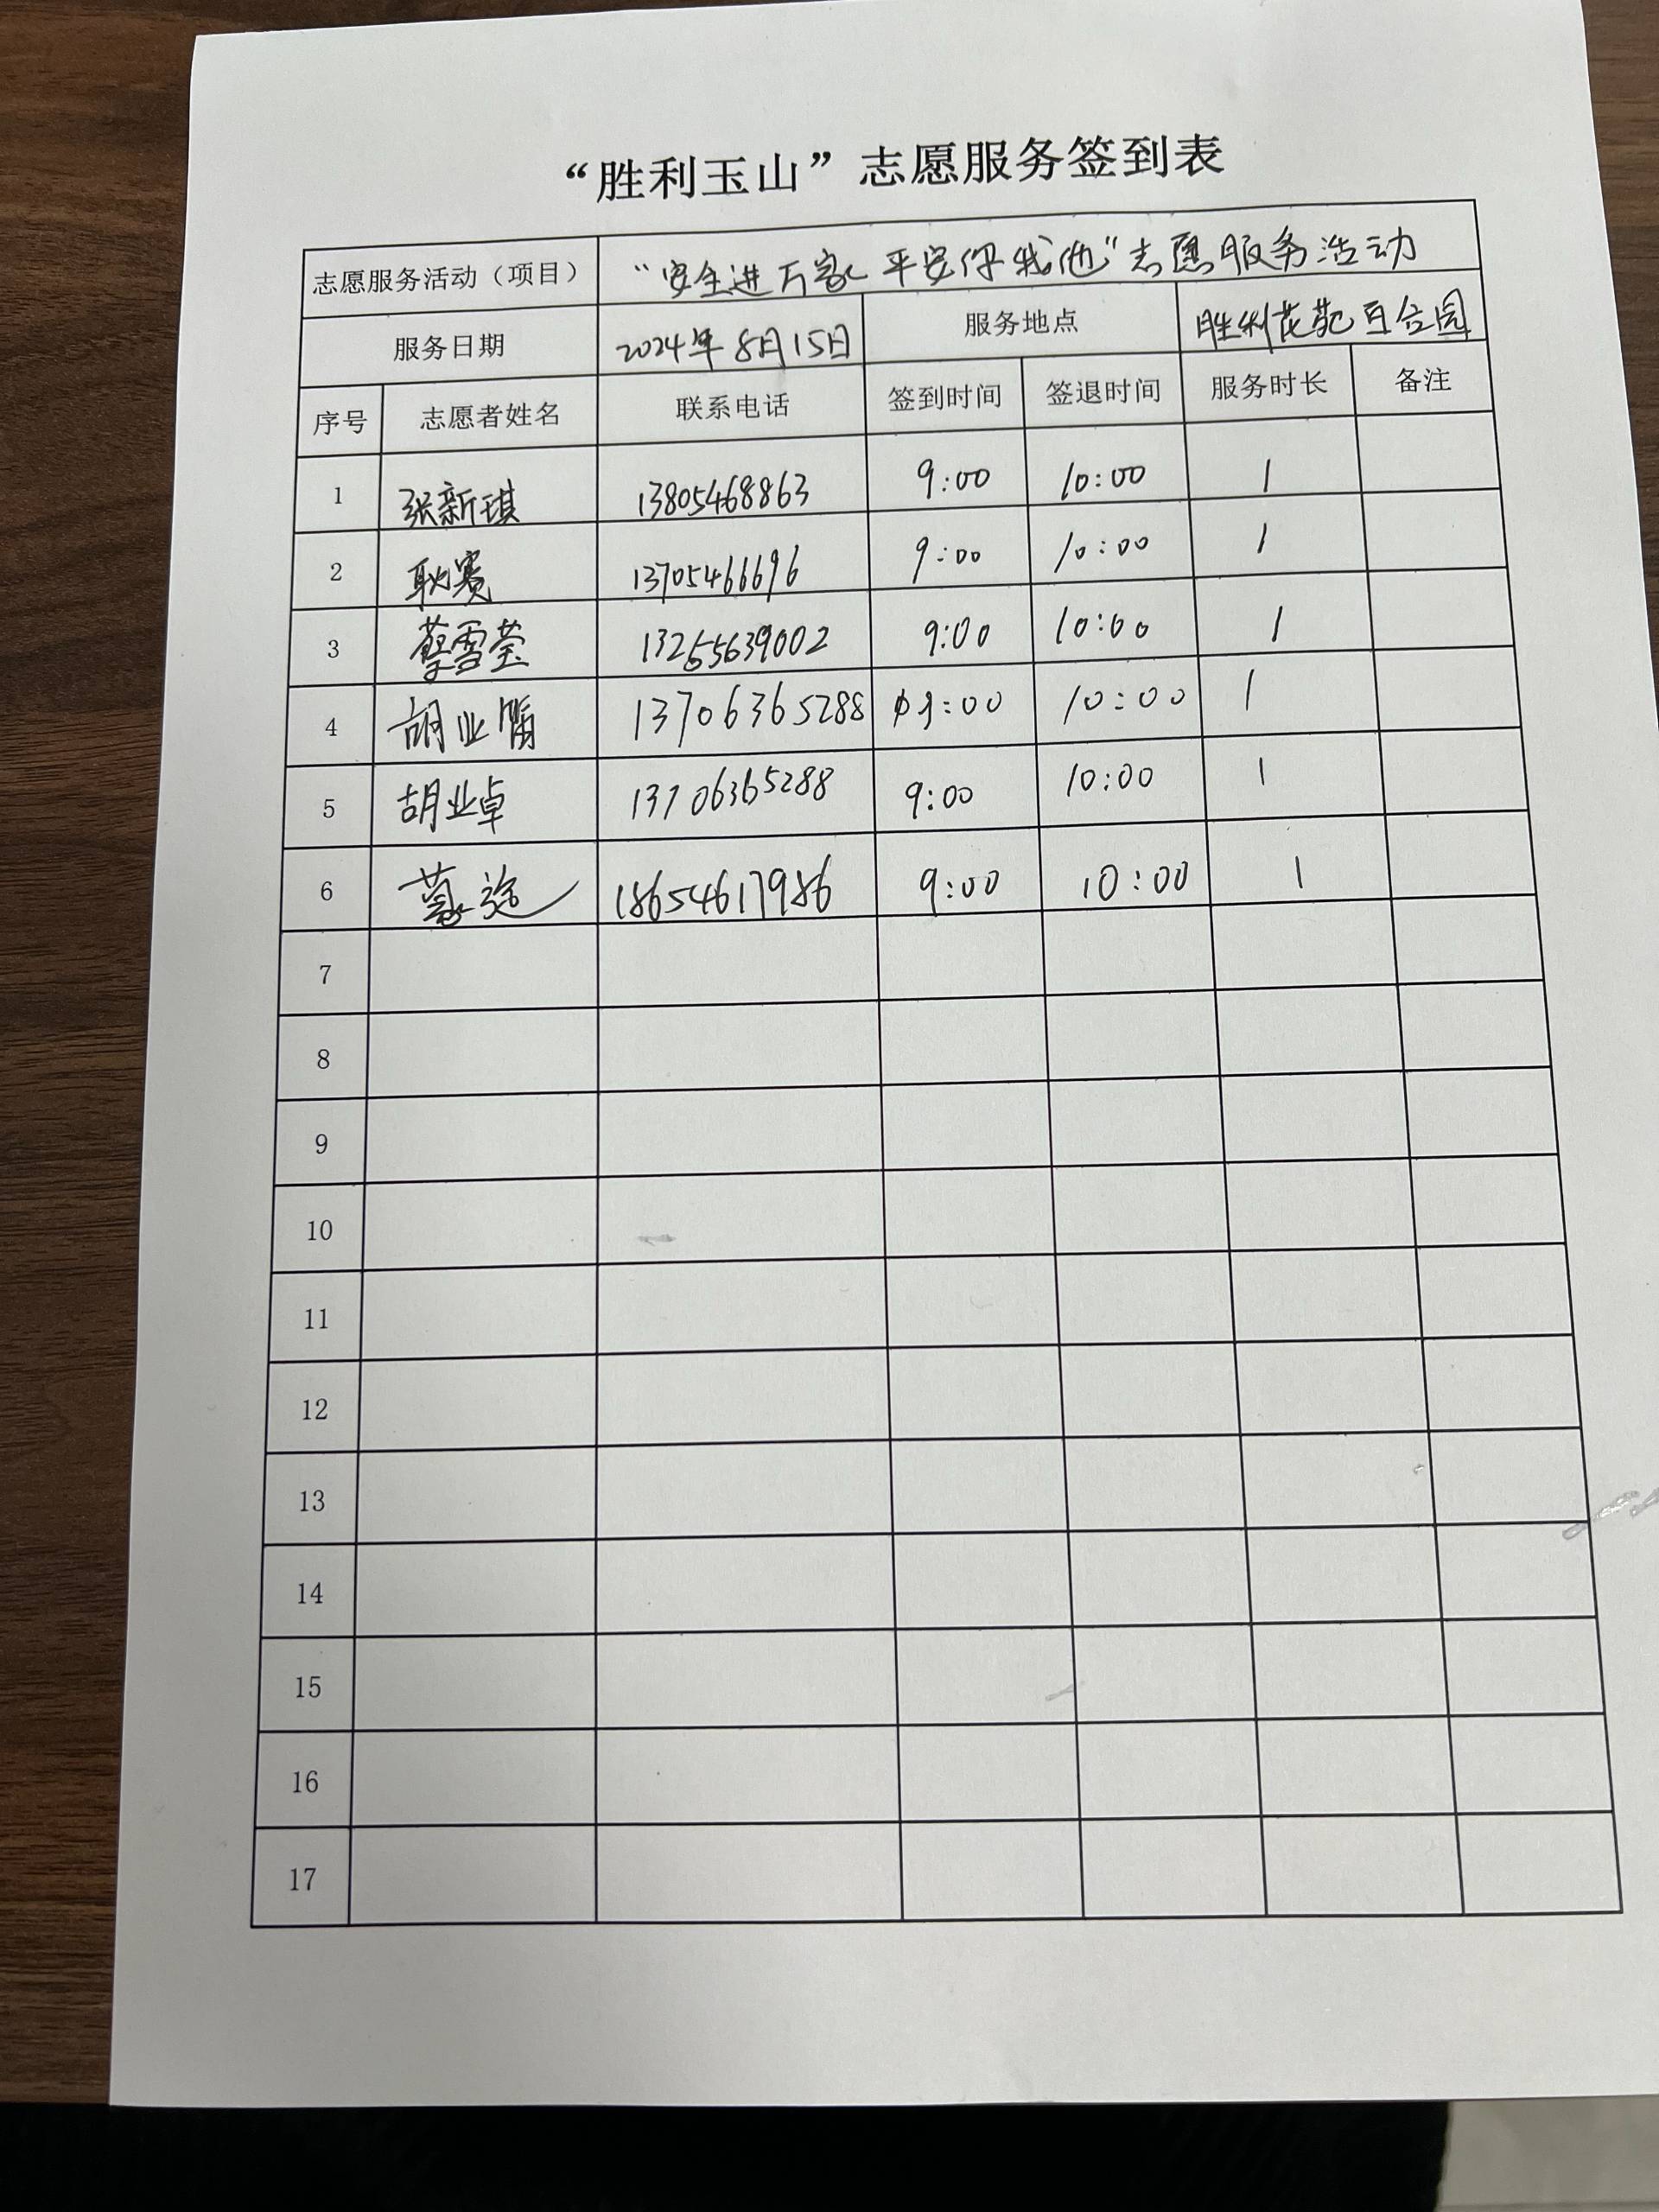 “胜利玉山”志愿服务签到表
志愿服务活动（项目） “安全进万家 平安你我他”志愿服务活动
服务日期 2024年8月15日 服务地点 胜利花苑百合园
序号 志愿者姓名 联系电话 签到时间 签退时间 服务时长 备注
1 张新琪 13805468863 9:00 10:00 1
2 耿赛 13705466696 9:00 10:00 1
3 蔡雪莹 13255639002 9:00 10:00 1
4 胡业 13706365288 9:00 10:00 1
5 胡业卓 13706365288 9:00 10:00 1
6 18654617986 9:00 10:00 1
7
8
9
10
11
12
13
14
15
16
17